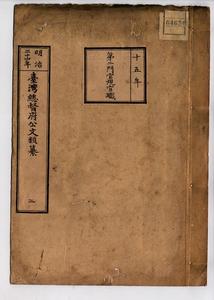 十五年
第二門官規官職
明治
三十年
臺灣總督府公文類纂